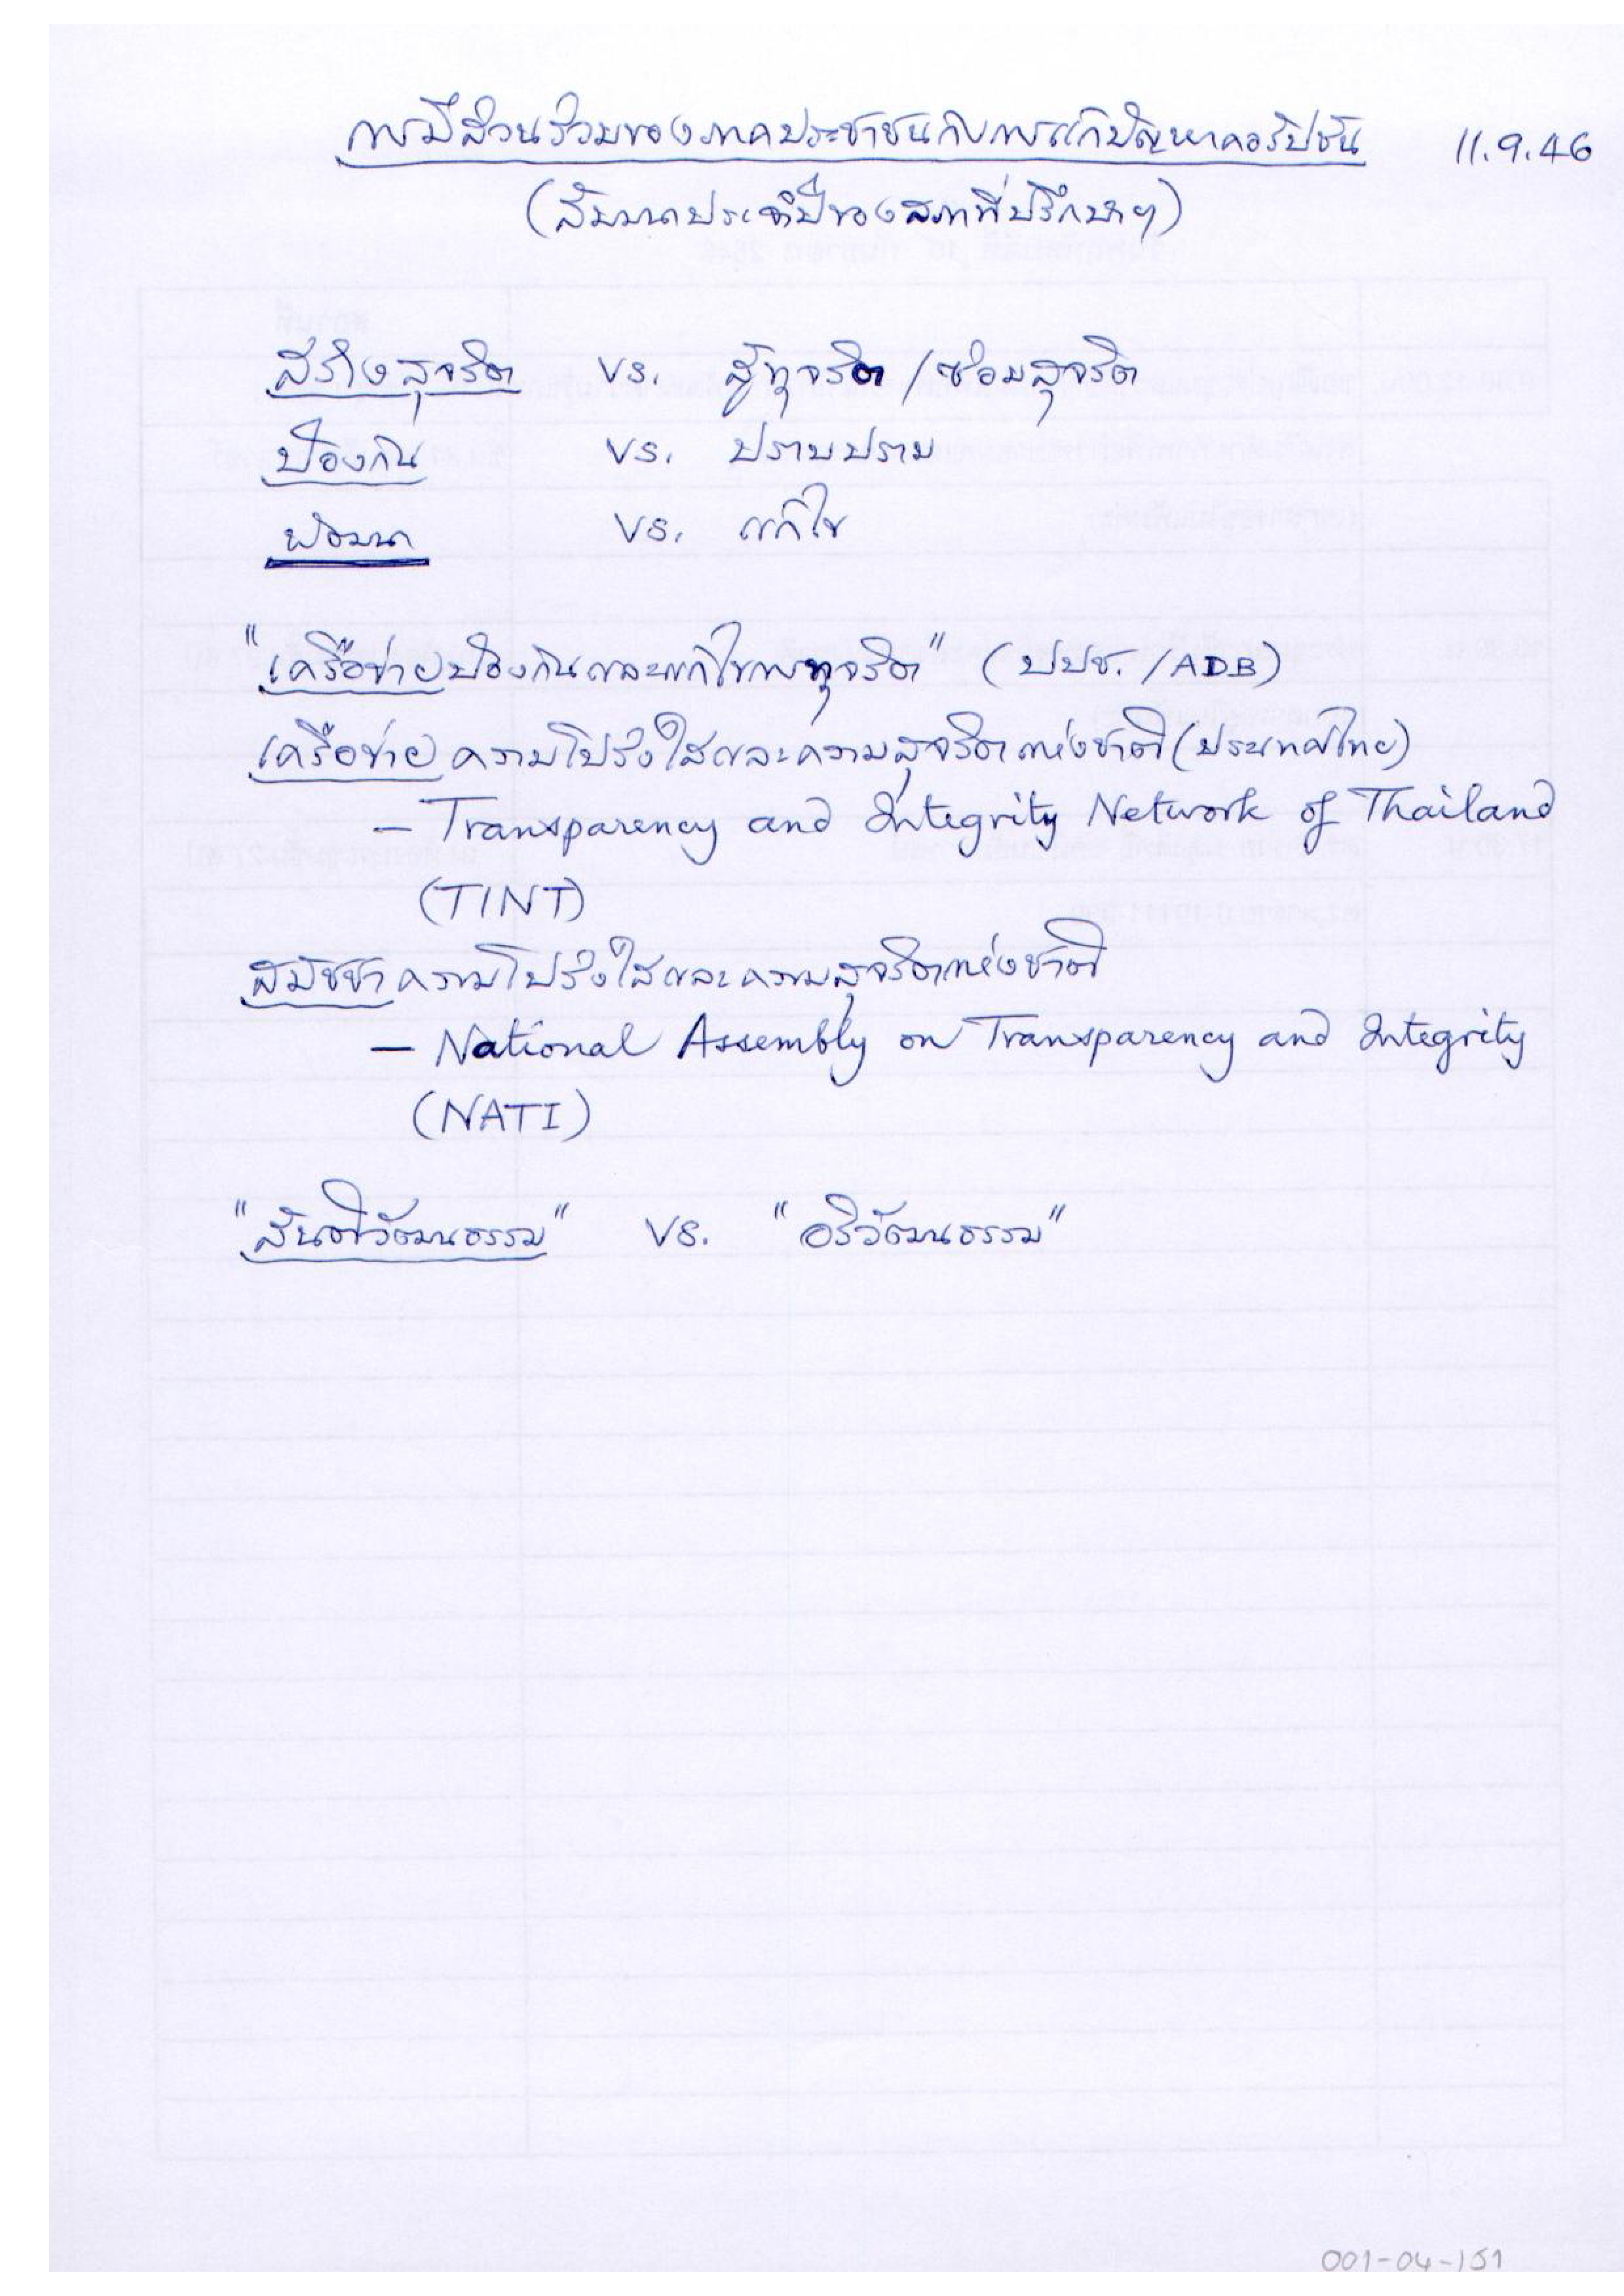 การมีส่วนร่วมของภาคประชาชนกับการแก้ปัญหาคอรัปชั่น 11.9.46
(สัมมนาประจำปีของสภาที่ปรึกษาฯ)
สร้างสุจริต vs. สู้ทุจริต / ซ่อมสุจริต
ป้องกัน vs. ปราบปราม
พัฒนา vs. แก้ไข
"เครือข่ายป้องกันและแก้ไขการทุจริต" (ปปช. / ADB)
เครือข่ายความโปร่งใสและความสุจริตแห่งชาติ (ประเทศไทย)
– Transparency and Integrity Network of Thailand
(TINT)
สมัชชาความโปร่งใสและความสุจริตแห่งชาติ
– National Assembly on Transparency and Integrity
(NATI)
"สันติวัฒนธรรม" vs. "อริวัฒนธรรม"
001-04-151